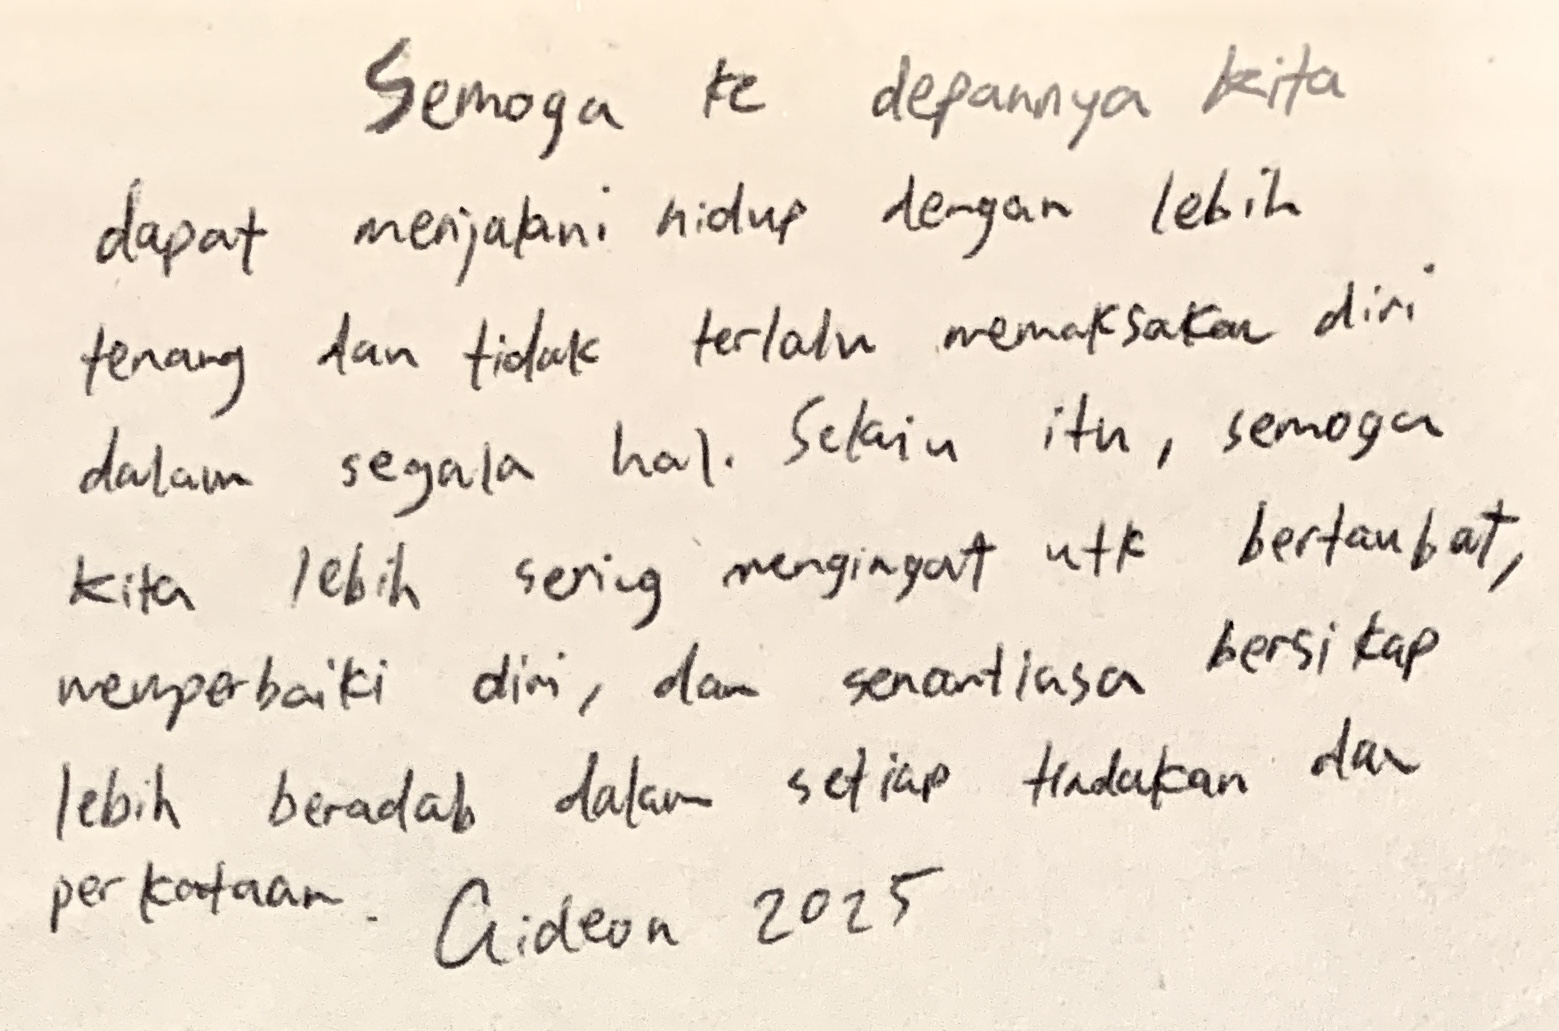 Semoga ke depannya kita
dapat menjalani hidup dengan lebih
tenang dan tidak terlalu memaksakan diri
dalam segala hal. Selain itu, semoga
kita lebih sering mengingat utk bertaubat,
memperbaiki diri, dan senantiasa bersikap
lebih beradab dalam setiap tindakan dan
perkataan. Gideon 2025